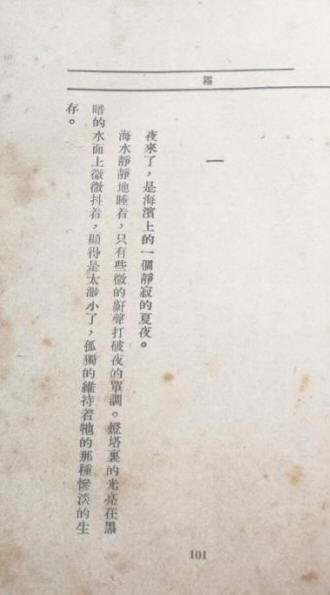 霧
一
夜來了，是海濱上的一個靜寂的夏夜。
海水靜靜地睡着，只有些微的鼾聲打破夜的單調。燈塔裏的光亮在黑
暗的水面上微微抖着，顯得是太渺小了，孤獨的維持着牠的那種慘淡的生
存。
101